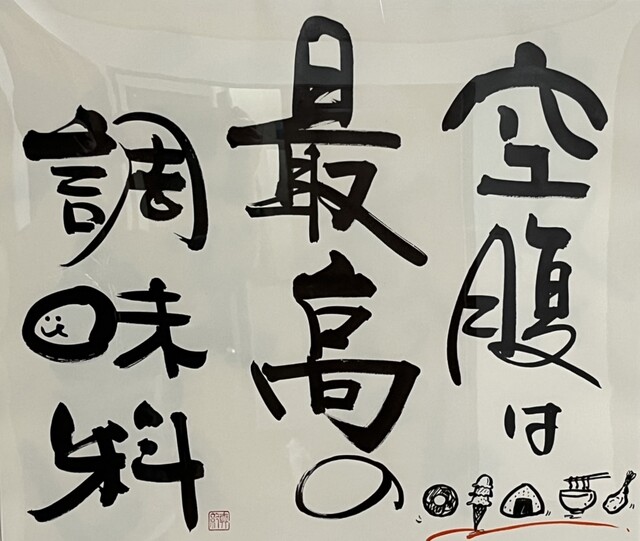 空腹は
最高の
調味料